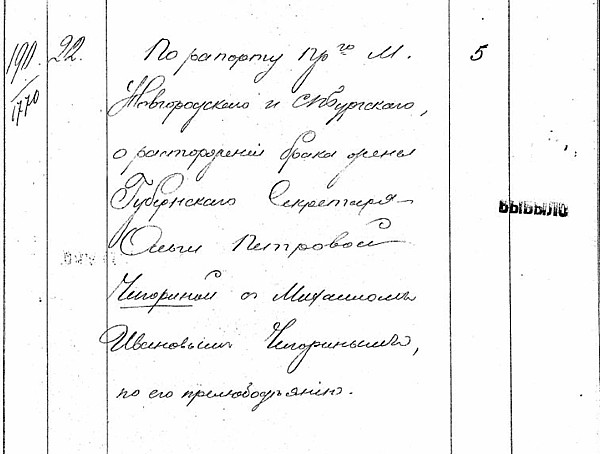 190. 22. По рапорту Пр го М. 5
1770
Новгородского и СПбургского,
о расторженіи брака жены
Губернскаго Секретаря
ВЫБЫЛО
Ольги Петровой
Чигориной съ Михаиломъ
Ивановымъ Чигоринымъ,
по его прелюбодѣянію.